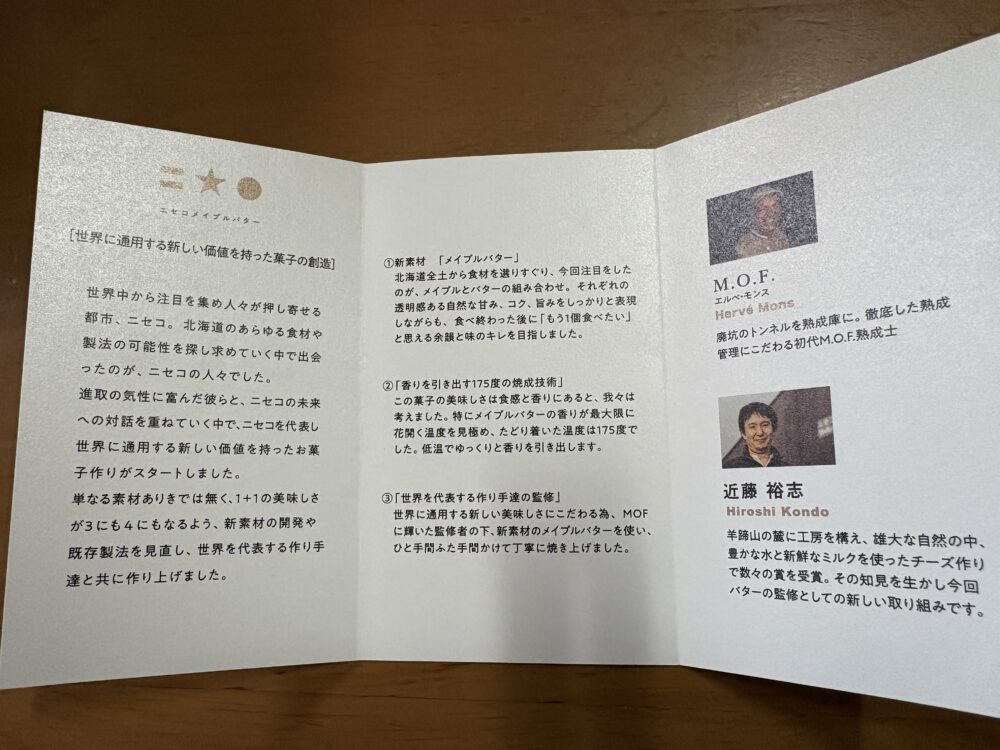 ニセコメイプルバター
[世界に通用する新しい価値を持った菓子の創造]
世界中から注目を集め人々が押し寄せる
都市、ニセコ。北海道のあらゆる食材や
製法の可能性を探し求めていく中で出会
ったのが、ニセコの人々でした。
進取の気性に富んだ彼らと、ニセコの未来
への対話を重ねていく中で、ニセコを代表し
世界に通用する新しい価値を持ったお菓
子作りがスタートしました。
単なる素材ありきでは無く、1+1の美味しさ
が3にも4にもなるよう、新素材の開発や
既存製法を見直し、世界を代表する作り手
達と共に作り上げました。
①新素材 「メイプルバター」
北海道全土から食材を選りすぐり、今回注目をした
のが、メイプルとバターの組み合わせ。それぞれの
透明感ある自然な甘み、コク、旨みをしっかりと表現
しながらも、食べ終わった後に「もう1個食べたい」
と思える余韻と味のキレを目指しました。
②「香りを引き出す175度の焼成技術」
この菓子の美味しさは食感と香りにあると、我々は
考えました。特にメイプルバターの香りが最大限に
花開く温度を見極め、たどり着いた温度は175度で
した。低温でゆっくりと香りを引き出します。
③「世界を代表する作り手達の監修」
世界に通用する新しい美味しさにこだわる為、MOF
に輝いた監修者の下、新素材のメイプルバターを使い、
ひと手間ふた手間かけて丁寧に焼き上げました。
M.O.F.
エルベ・モンス
Hervé Mons
廃坑のトンネルを熟成庫に。徹底した熟成
管理にこだわる初代M.O.F.熟成士
近藤 裕志
Hiroshi Kondo
羊蹄山の麓に工房を構え、雄大な自然の中、
豊かな水と新鮮なミルクを使ったチーズ作り
で数々の賞を受賞。その知見を生かし今回
バターの監修としての新しい取り組みです。